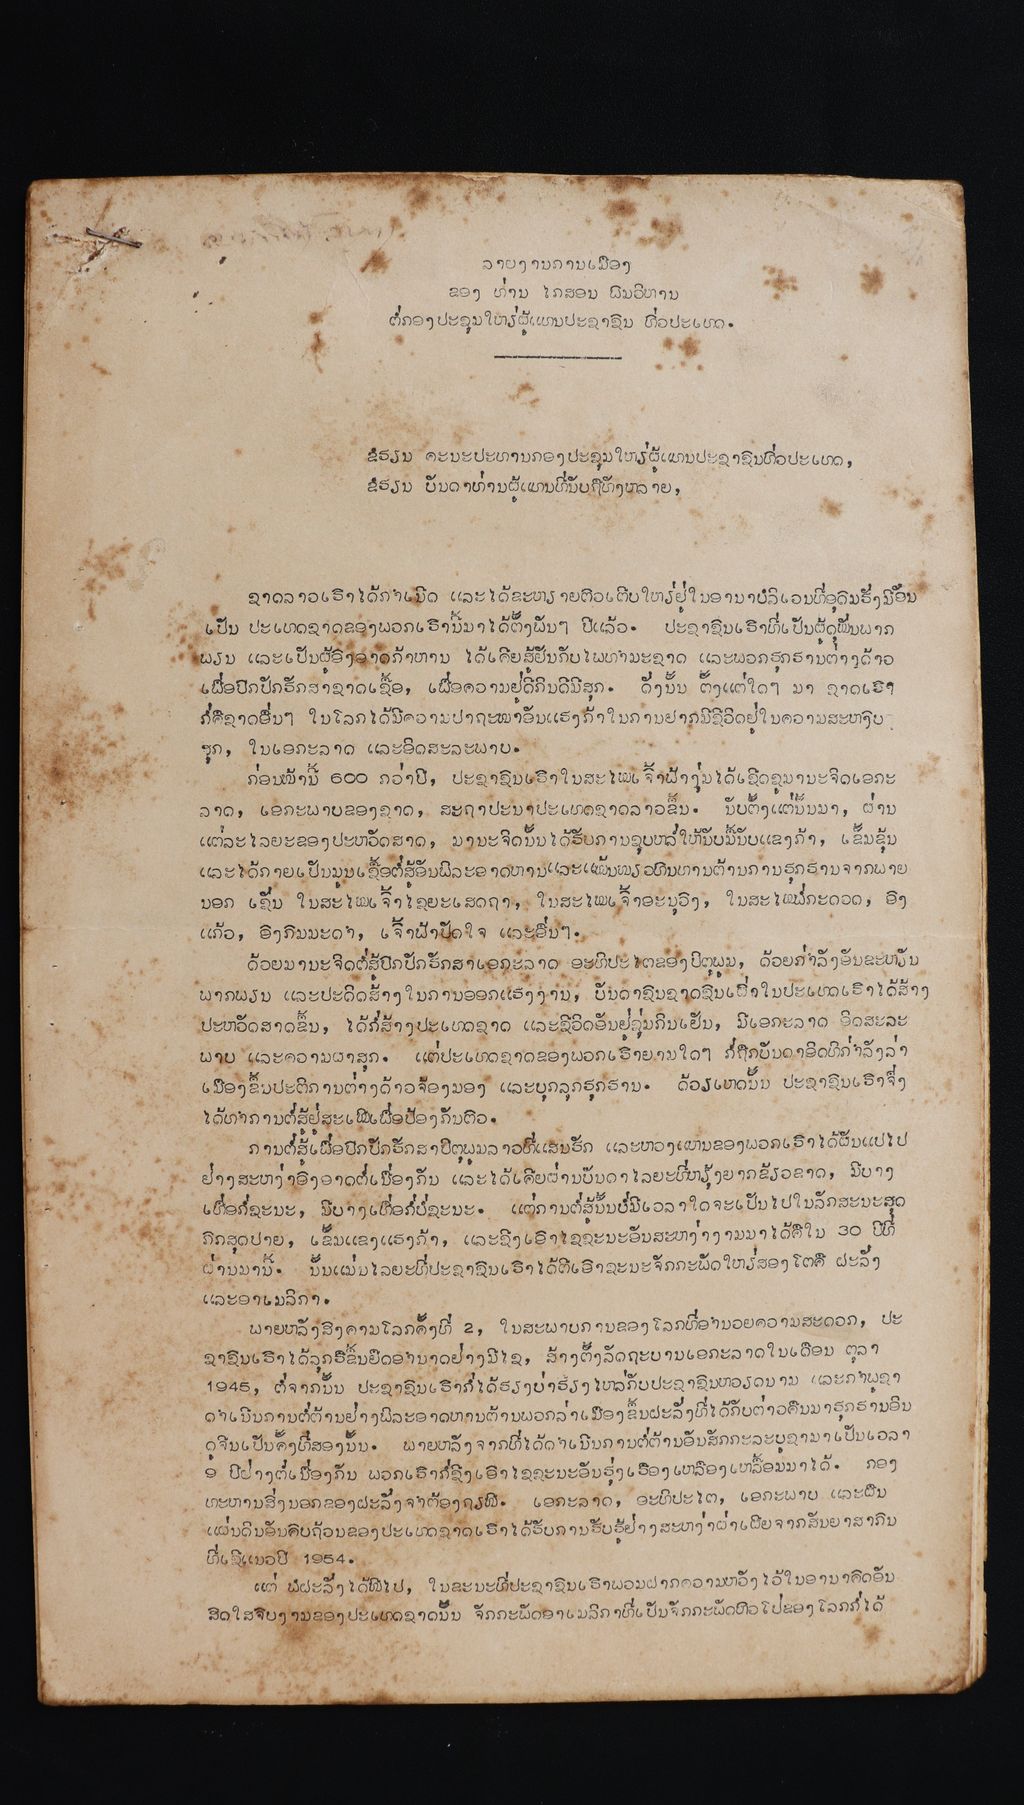 ລາຍງານການເມືອງ
ຂອງ ທ່ານ ໄກສອນ ພົມວິຫານ
ຕໍ່ກອງປະຊຸມໃຫຽ່ຜູ້ແທນປະຊາຊົນ ທົ່ວປະເທດ.
ຂໍຮຽນ ຄະນະປະທານກອງປະຊຸມໃຫຽ່ຜູ້ແທນປະຊາຊົນທົ່ວປະເທດ,
ຂໍຮຽນ ບັນດາທ່ານຜູ້ແທນທີ່ນັບຖືທັງຫລາຍ,
ຊາດລາວເຮົາໄດ້ກຳເນີດ ແລະໄດ້ຂະຫຽາຍຕົວເຕີບໃຫຽ່ຢູ່ໃນອານາບໍລິເວນທີ່ອຸດົມຮັ່ງມີອັນ
ເປັນ ປະເທດຊາດຂອງພວກເຮົານີ້ມາໄດ້ຕັ້ງພັນໆ ປີແລ້ວ. ປະຊາຊົນເຮົາທີ່ເປັນຜູ້ດຸໝັ່ນພາກ
ພຽນ ແລະເປັນຜູ້ອົງອາດກ້າຫານ ໄດ້ເຄີຍສູ້ຢັນກັບໄພທຳມະຊາດ ແລະພວກຮຸກຮານຕ່າງດ້າວ
ເພື່ອປົກປັກຮັກສາຊາດເຊື້ອ, ເພື່ອຄວາມຢູ່ດີກິນດີມີສຸກ. ດັ່ງນັ້ນ ຕັ້ງແຕ່ໃດໆ ມາ ຊາດເຮົາ
ກໍ່ຄືຊາດອື່ນໆ ໃນໂລກໄດ້ມີຄວາມປາຖະໜາອັນແຮງກ້າໃນການຢາກມີຊີວິດຢູ່ໃນຄວາມສະຫງົບ
ຸກ, ໃນເອກະລາດ ແລະອິດສະລະພາບ.
ກ່ອນໜ້ານີ້ 600 ກວ່າປີ, ປະຊາຊົນເຮົາໃນສະໄໝເຈົ້າຟ້າງຸ່ມໄດ້ເຊີດຊູມານະຈິດເອກະ
ລາດ, ເອກະພາບຂອງຊາດ, ສະຖາປະນາປະເທດຊາດລາວຂຶ້ນ. ນັບຕັ້ງແຕ່ນັ້ນມາ, ຜ່ານ
ແຕ່ລະໄລຍະຂອງປະຫວັດສາດ, ມານະຈິດນັ້ນໄດ້ຮັບການຊຸບຫລໍ່ໃຫ້ນັບມື້ນັບແຂງກ້າ, ເຂັ້ມຂຸ້ນ
ແລະໄດ້ກາຍເປັນມູນເຊື້ອຕໍ່ສູ້ອັນພິລະອາດຫານແລະແໜ້ນໜຽວທົນທານຕ້ານການຮຸກຮານຈາກພາຍ
ນອກ ເຊັ່ນ ໃນສະໄໝເຈົ້າໄຊຍະເສດຖາ, ໃນສະໄໝເຈົ້າອະນຸວົງ, ໃນສະໄໝພໍ່ກະດວດ, ອົງ
ແກ້ວ, ອົງກົມມະດຳ, ເຈົ້າຟ້າປັດໃຈ ແລະອື່ນໆ.
ດ້ວຍມານະຈິດຕໍ່ສູ້ປົກປັກຮັກສາເອກະລາດ ອະທິປະໄຕຂອງປິຕຸພູມ, ດ້ວຍກຳລັງອັນຂະຫຽັນ
ພາກພຽນ ແລະປະດິດສ້າງໃນການອອກແຮງງານ, ບັນດາຊົນຊາດຊົນເຜົ່າໃນປະເທດເຮົາໄດ້ສ້າງ
ປະຫວັດສາດຂຶ້ນ, ໄດ້ກໍ່ສ້າງປະເທດຊາດ ແລະຊີວິດອັນຢູ່ຊຸ່ມກິນເຢັນ, ມີເອກະລາດ ອິດສະລະ
ພາບ ແລະຄວາມຜາສຸກ. ແຕ່ປະເທດຊາດຂອງພວກເຮົາຍາມໃດໆ ກໍ່ຖືກບັນດາອິດທິກຳລັງລ່າ
ເມືອງຂຶ້ນປະຕິການຕ່າງດ້າວຈ້ອງມອງ ແລະບຸກລຸກຮຸກຮານ. ດ້ວຽເຫດນັ້ນ ປະຊາຊົນເຮົາຈຶ່ງ
ໄດ້ທຳການຕໍ່ສູ້ຢູ່ສະເໝີເພື່ອປ້ອງກັນຕົວ.
ການຕໍ່ສູ້ເພື່ອປົກປັກຮັກສາປິຕຸພູມລາວທີ່ແສນຮັກ ແລະຫວງແຫນຂອງພວກເຮົາໄດ້ຜັນແປໄປ
ຢ່າງສະຫງ່າອົງອາດຕໍ່ເນື່ອງກັນ ແລະໄດ້ເຄີຍຜ່ານບັນດາໄລຍະທີ່ຫຽຸ້ງຍາກຂ້ຽວຂາດ, ມີບາງ
ເທື່ອກໍ່ຊະນະ, ມີບາງເທື່ອກໍ່ບໍ່ຊະນະ. ແຕ່ການຕໍ່ສູ້ນັ້ນບໍ່ມີເວລາໃດຈະເປັນໄປໃນລັກສະນະສຸດ
ກົກສຸດປາຍ, ເຂັ້ມແຂງແຮງກ້າ, ແລະຊີງເອົາໄຊຊະນະອັນສະຫງ່າງາມມາໄດ້ຄືໃນ 30 ປີທີ່
ຜ່ານມານີ້. ນັ້ນແມ່ນໄລຍະທີ່ປະຊາຊົນເຮົາໄດ້ຕີເອົາຊະນະຈັກກະພັດໃຫຽ່ສອງໂຕຄື ຝະລັ່ງ
ແລະອາເມລິກາ.
ພາຍຫລັງສົງຄາມໂລກຄັ້ງທີ່ 2, ໃນສະພາບການຂອງໂລກທີ່ອຳນວຍຄວາມສະດວກ, ປະ
ຊາຊົນເຮົາໄດ້ລຸກຮືຂຶ້ນຍຶດອຳນາດຢ່າງມີໄຊ, ສ້າງຕັ້ງລັດຖະບານເອກະລາດໃນເດືອນ ຕຸລາ
1945, ຕໍ່ຈາກນັ້ນ ປະຊາຊົນເຮົາກໍ່ໄດ້ຮຽງບ່າຮ່ຽງໄຫລ່ກັບປະຊາຊົນຫວຽດນາມ ແລະກຳພູຊາ
ດຳເນີນການຕໍ່ຕ້ານຢ່າງພິລະອາດຫານຕ້ານພວກລ່າເມືອງຂຶ້ນຝະລັ່ງທີ່ໄດ້ກັບຕ່າວຄືນມາຮຸກຮານອິນ
ດູຈີນເປັນຄັ້ງທີ່ສອງນັ້ນ. ພາຍຫລັງຈາກທີ່ໄດ້ດຳເນີນການຕໍ່ຕ້ານອັນສັກກະລະບູຊາມາເປັນເວລາ
໑ ປີຢ່າງຕໍ່ເນື່ອງກັນ ພວກເຮົາກໍ່ຊີງເອົາໄຊຊະນະອັນຮຸ່ງເຮືອງເຫລືອງເຫລື້ອມມາໄດ້. ກອງ
ທະຫານສົ່ງນອກຂອງຝະລັ່ງຈຳຕ້ອງຖຽໜີ. ເອກະລາດ, ອະທິປະໄຕ, ເອກະພາບ ແລະຜືນ
ແຜ່ນດິນອັນຄົບຖ້ວນຂອງປະເທດຊາດເຮົາໄດ້ຮັບການຮັບຮູ້ຢ່າງສະຫງ່າຜ່າເຜີຍຈາກສັນຍາສາກົນ
ທີ່ເຊີແນວປີ 1954.
ແຕ່ ພໍຝະລັ່ງໄດ້ໜີໄປ, ໃນຂະນະທີ່ປະຊາຊົນເຮົາພວມຝາກຄວາມຫວັງໄວ້ໃນອານາຄົດອັນ
ສົດໃສຈົບງາມຂອງປະເທດຊາດນັ້ນ ຈັກກະພັດອາເມລິກາທີ່ເປັນຈັກກະພັດຫົວໂປ່ຂອງໂລກກໍ່ໄດ້